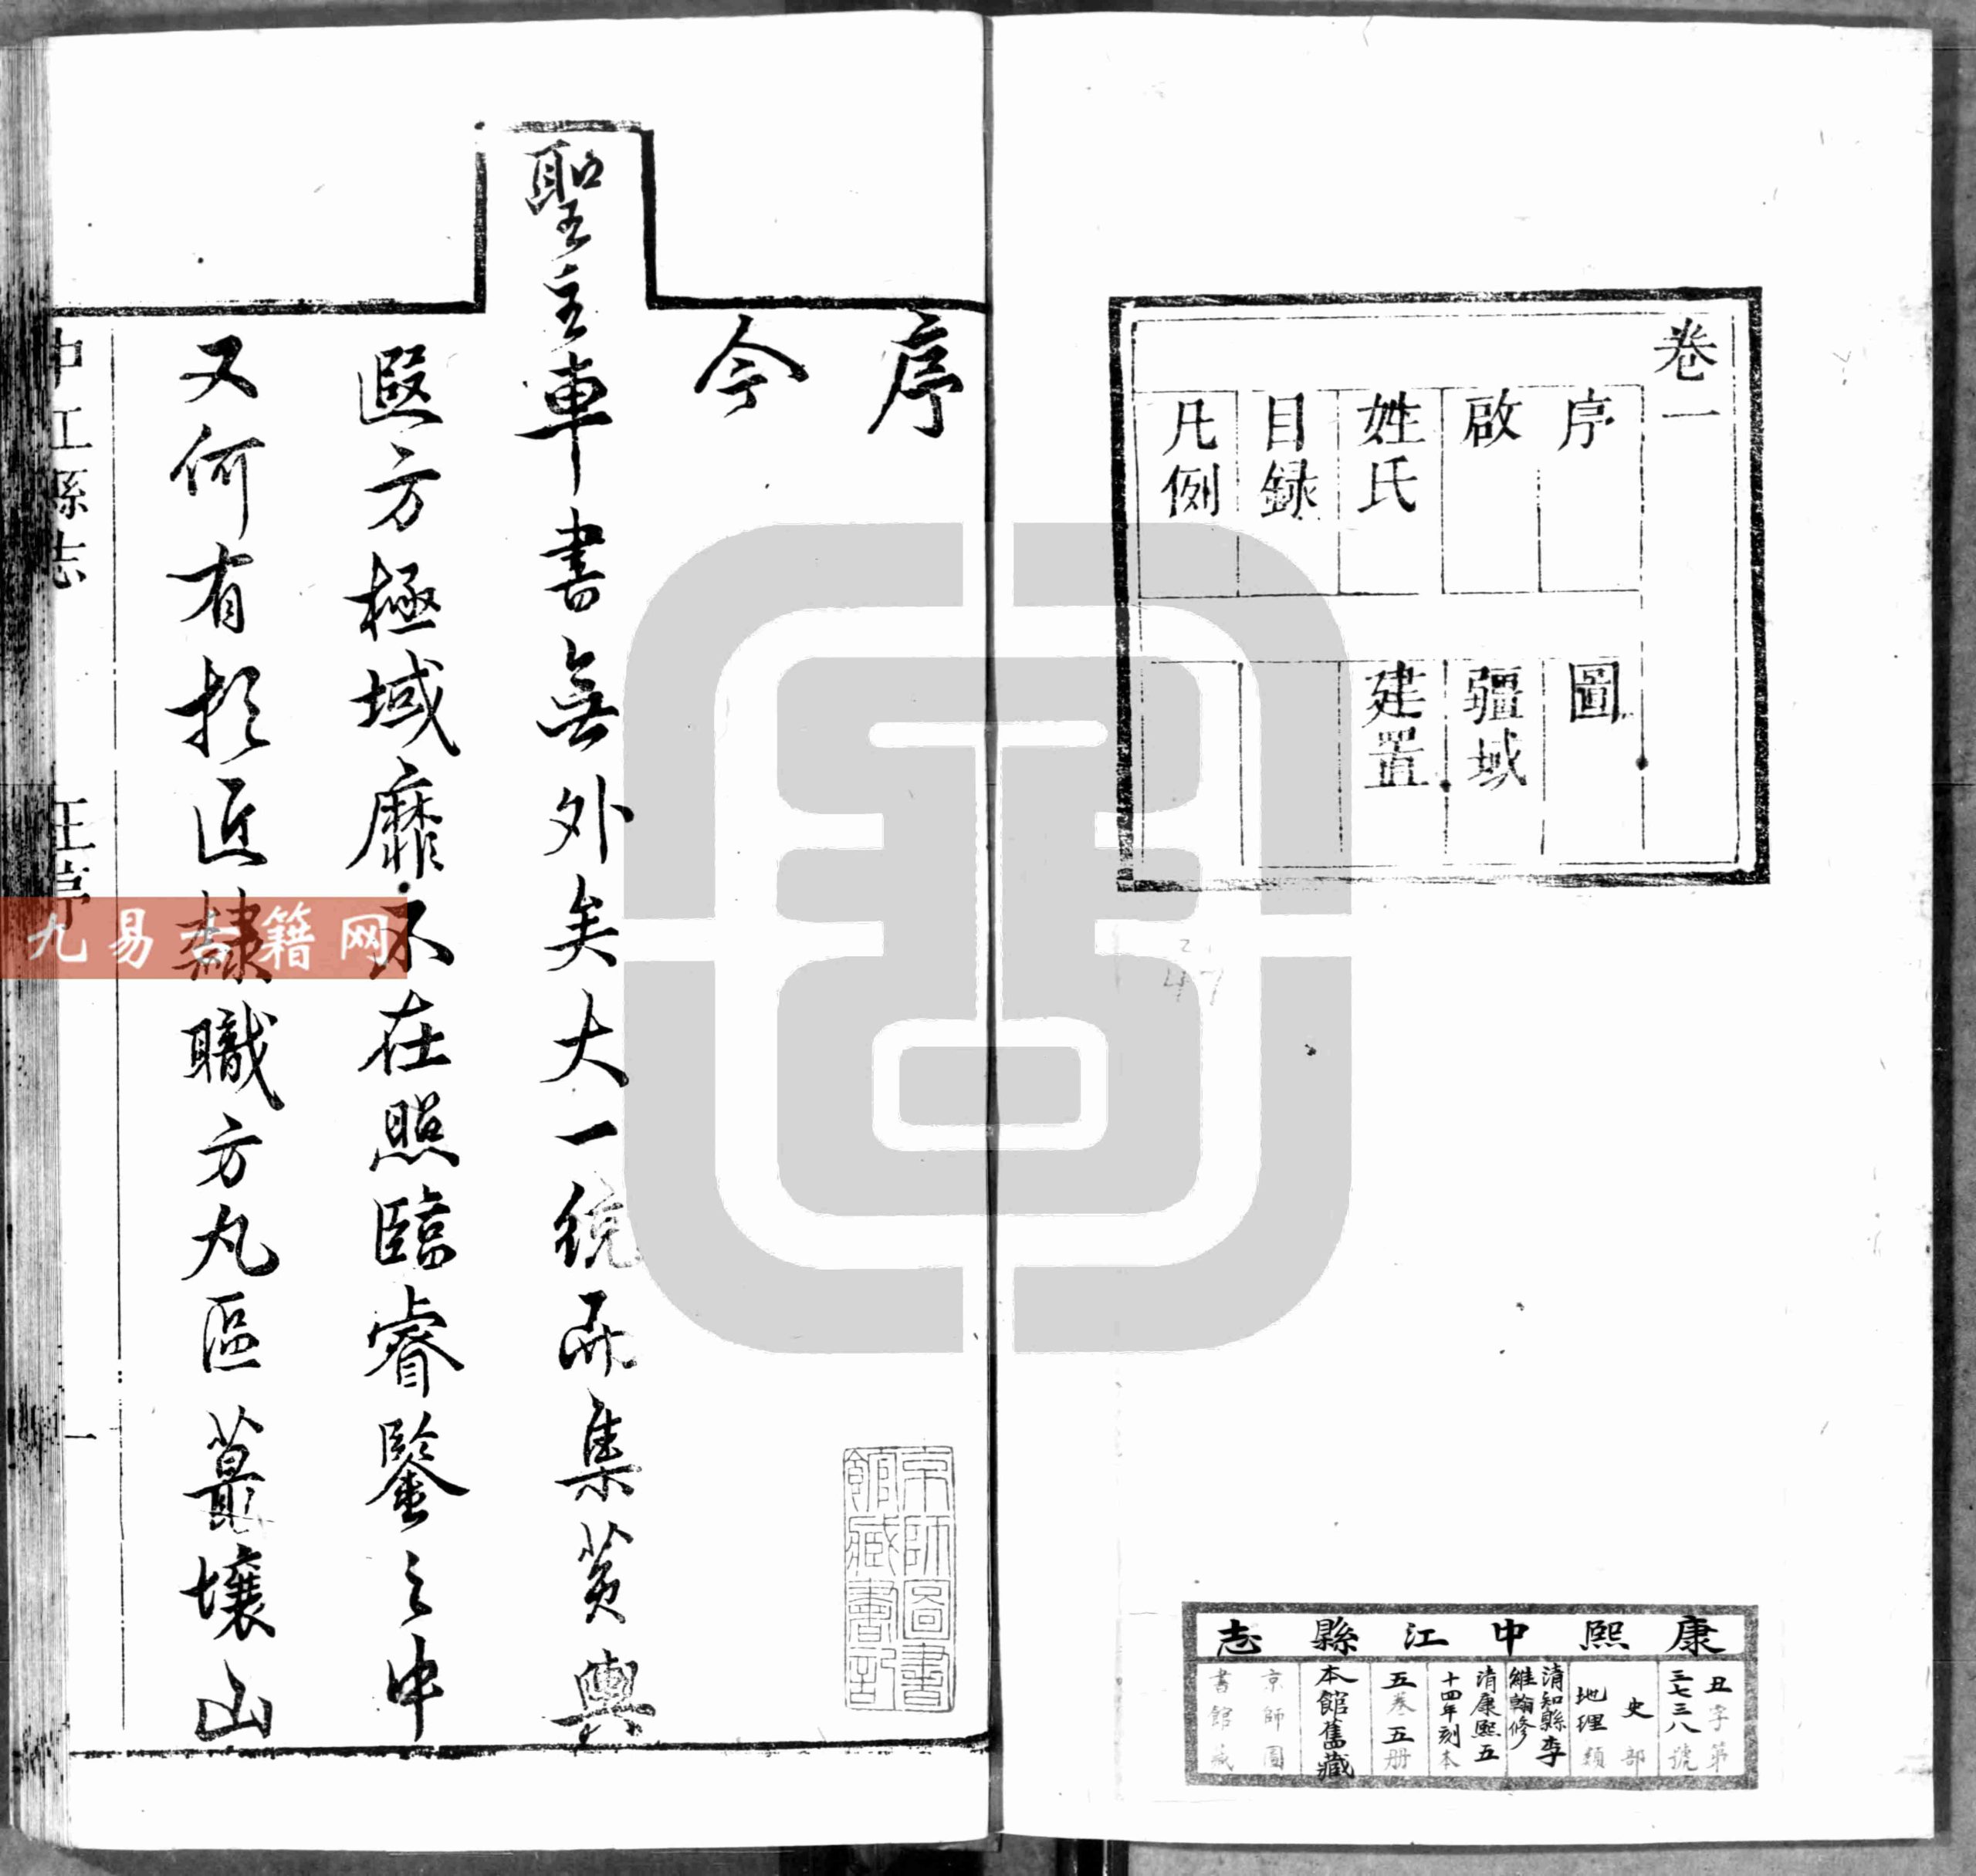 卷一
序
啟
姓氏
目録
凡例
圖
疆域
建置
康熙中江縣志
丑字第
三七三八號
史部
地理類
清知縣李
維翰修
清康熙五
十四年刻本
五卷五册
本館舊藏
京師圖
書館藏
序
今
聖主車書無外矣大一統而集黃輿
遐方極域靡不在照臨睿鑒之中
又何有於匠隸職方丸區蕞壤山
中江縣志
王序
一
京師圖書
館藏書記
九易古籍网